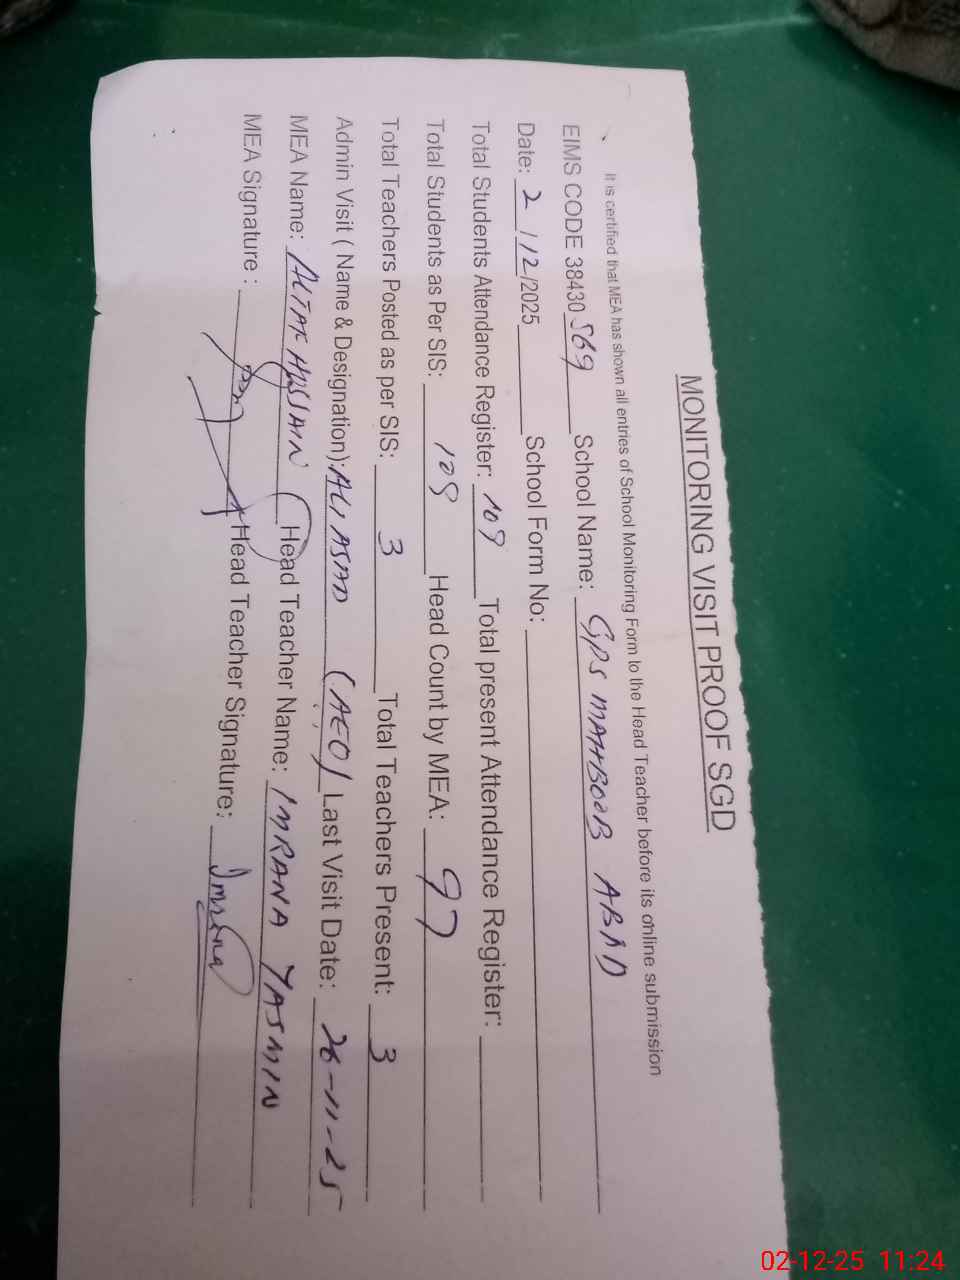 MONITORING VISIT PROOF SGD
It is certified that MEA has shown all entries of School Monitoring Form to the Head Teacher before its online submission
EIMS CODE 38430 569 School Name: GPS MAHBOOB ABAD
Date: 2/12/2025 School Form No:
Total Students Attendance Register: 109 Total present Attendance Register:
Total Students as Per SIS: 109 Head Count by MEA: 97
Total Teachers Posted as per SIS: 3 Total Teachers Present: 3
Admin Visit ( Name & Designation): ALI ASAD (AEO) Last Visit Date: 26-11-25
MEA Name: ALTAF HUSSAIN Head Teacher Name: IMRANA YASMIN
MEA Signature : Head Teacher Signature: Imrana
02-12-25 11:24